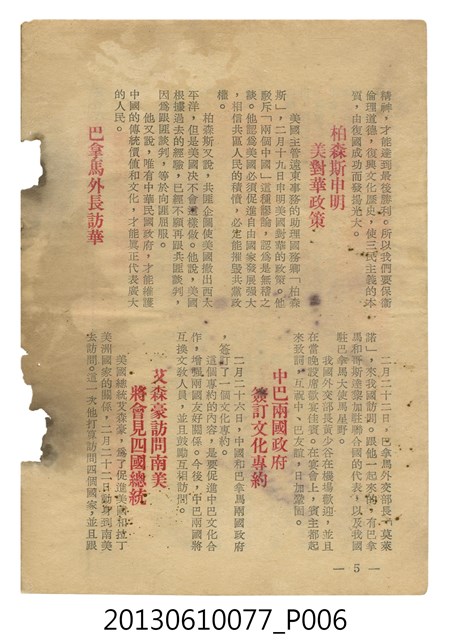 精神，才能達到最後勝利。所以我們要保衞
倫理道德，復興文化歷史，使三民主義的本
質，由復國成功而發揚光大。
柏森斯申明
美對華政策
美國主管遠東事務的助理國務卿「柏森
斯」，二月十九日申明美國對華的政策。他
駁斥「兩個中國」這種謬論，認爲是無稽之
談。他認爲美國必須促進自由國家發展强大
，相信共區人民的積憤，必定能摧毀共黨政
權。
柏森斯又說，共匪企圖使美國撤出西太
平洋，但是美國决不會這樣做。他說，美國
根據過去的經驗，已經不願再跟共匪談判，
因爲跟匪談判，等於向匪屈服。
他又說，唯有中華民國政府，才能維護
中國的傳統價值和文化，才能眞正代表廣大
的人民。
巴拿馬外長訪華
二月二十二日，巴拿馬外交部長「莫萊
諾」，來我國訪問。跟他一起來的，有巴拿
馬和哥斯達黎加駐聯合國的代表，以及我國
駐巴拿馬大使馬星野。
我國外交部長黃少谷在機塲歡迎，並且
在當晚設席歡宴佳賓。在宴會上，賓主都起
來致詞，互祝中、巴友誼，日加鞏固。
中巴兩國政府
簽訂文化專約
二月二十六日，中國和巴拿馬兩國政府
，簽訂了一個文化專約。
這個專約的內容，是要促進中巴文化合
作，增進兩國友好關係。今後，中巴兩國將
互換文敎人員，並且鼓勵互相訪問。
艾森豪訪問南美
將會見四國總統
美國總統艾森豪，爲了促進美國和拉丁
美洲國家的關係，二月二十二日動身到南美
去訪問。這一次他打算訪問四個國家，並且跟
— 5 —
20130610077_P006